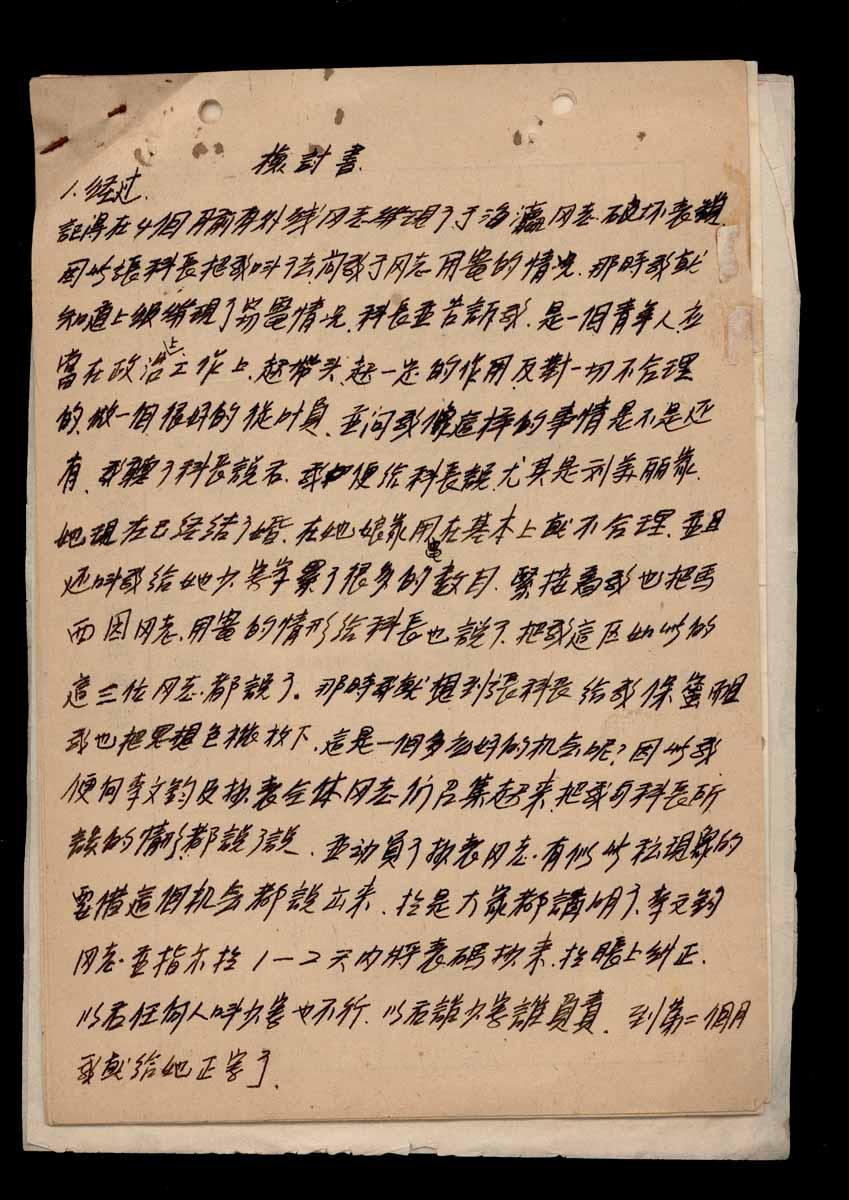 檢討書.
1.经过.
記得在4個月前有外线同志發現了于海瀛同志破坏表鎖
因此張科長把我叫了去问我于同志用電的情况.那時我就
知道上級發現了窃電情况.科長並告訴我.是一個青年人.应
當在政治上工作上.起带头.起一定的作用.反對一切不合理
的.做一個很好的從业員.並问我像這样的事情是不是还
有.我聽了科長說后.我便给科長說.尤其是刘美丽家.
她現在已经结了婚.在她娘家用電在基本上就不合理.並且
还叫我给她少寫字累了很多的數目.緊接着我也把馬
西因同志.用電的情形给科長也說了.把我這区如此的
這三位同志.都說了.那時我就想到張科長给我保密
我也把思想包袱放下.這是一個多么好的机会呢?因此我
便向李文鈞及抄表全体同志们召集起来.把我与科長所
談的情形都說了說.並动員了抄表同志.有似此种現象的
要借這個机会都說出来.於是大家都講明了.李文鈞
同志.並指示於1—2天内將表碼抄来.於賬上纠正.
以后任何人叫少寫也不行.以后誰少寫誰負責.到第二個月
我就给她正寫了.